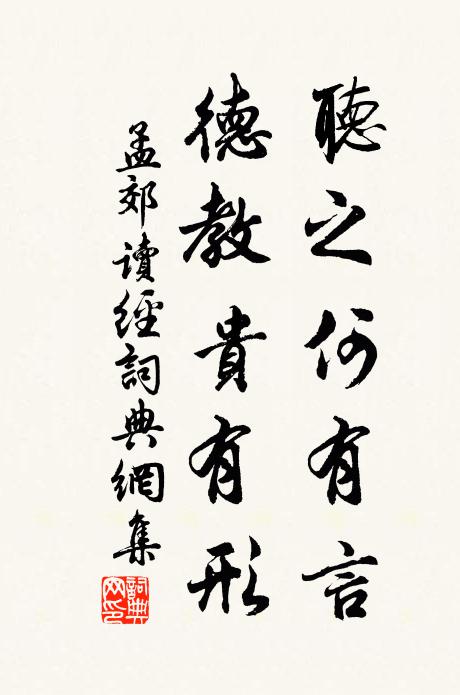 聽之何有言
德教貴有形
孟郊讀經詞典網集
詞典網印